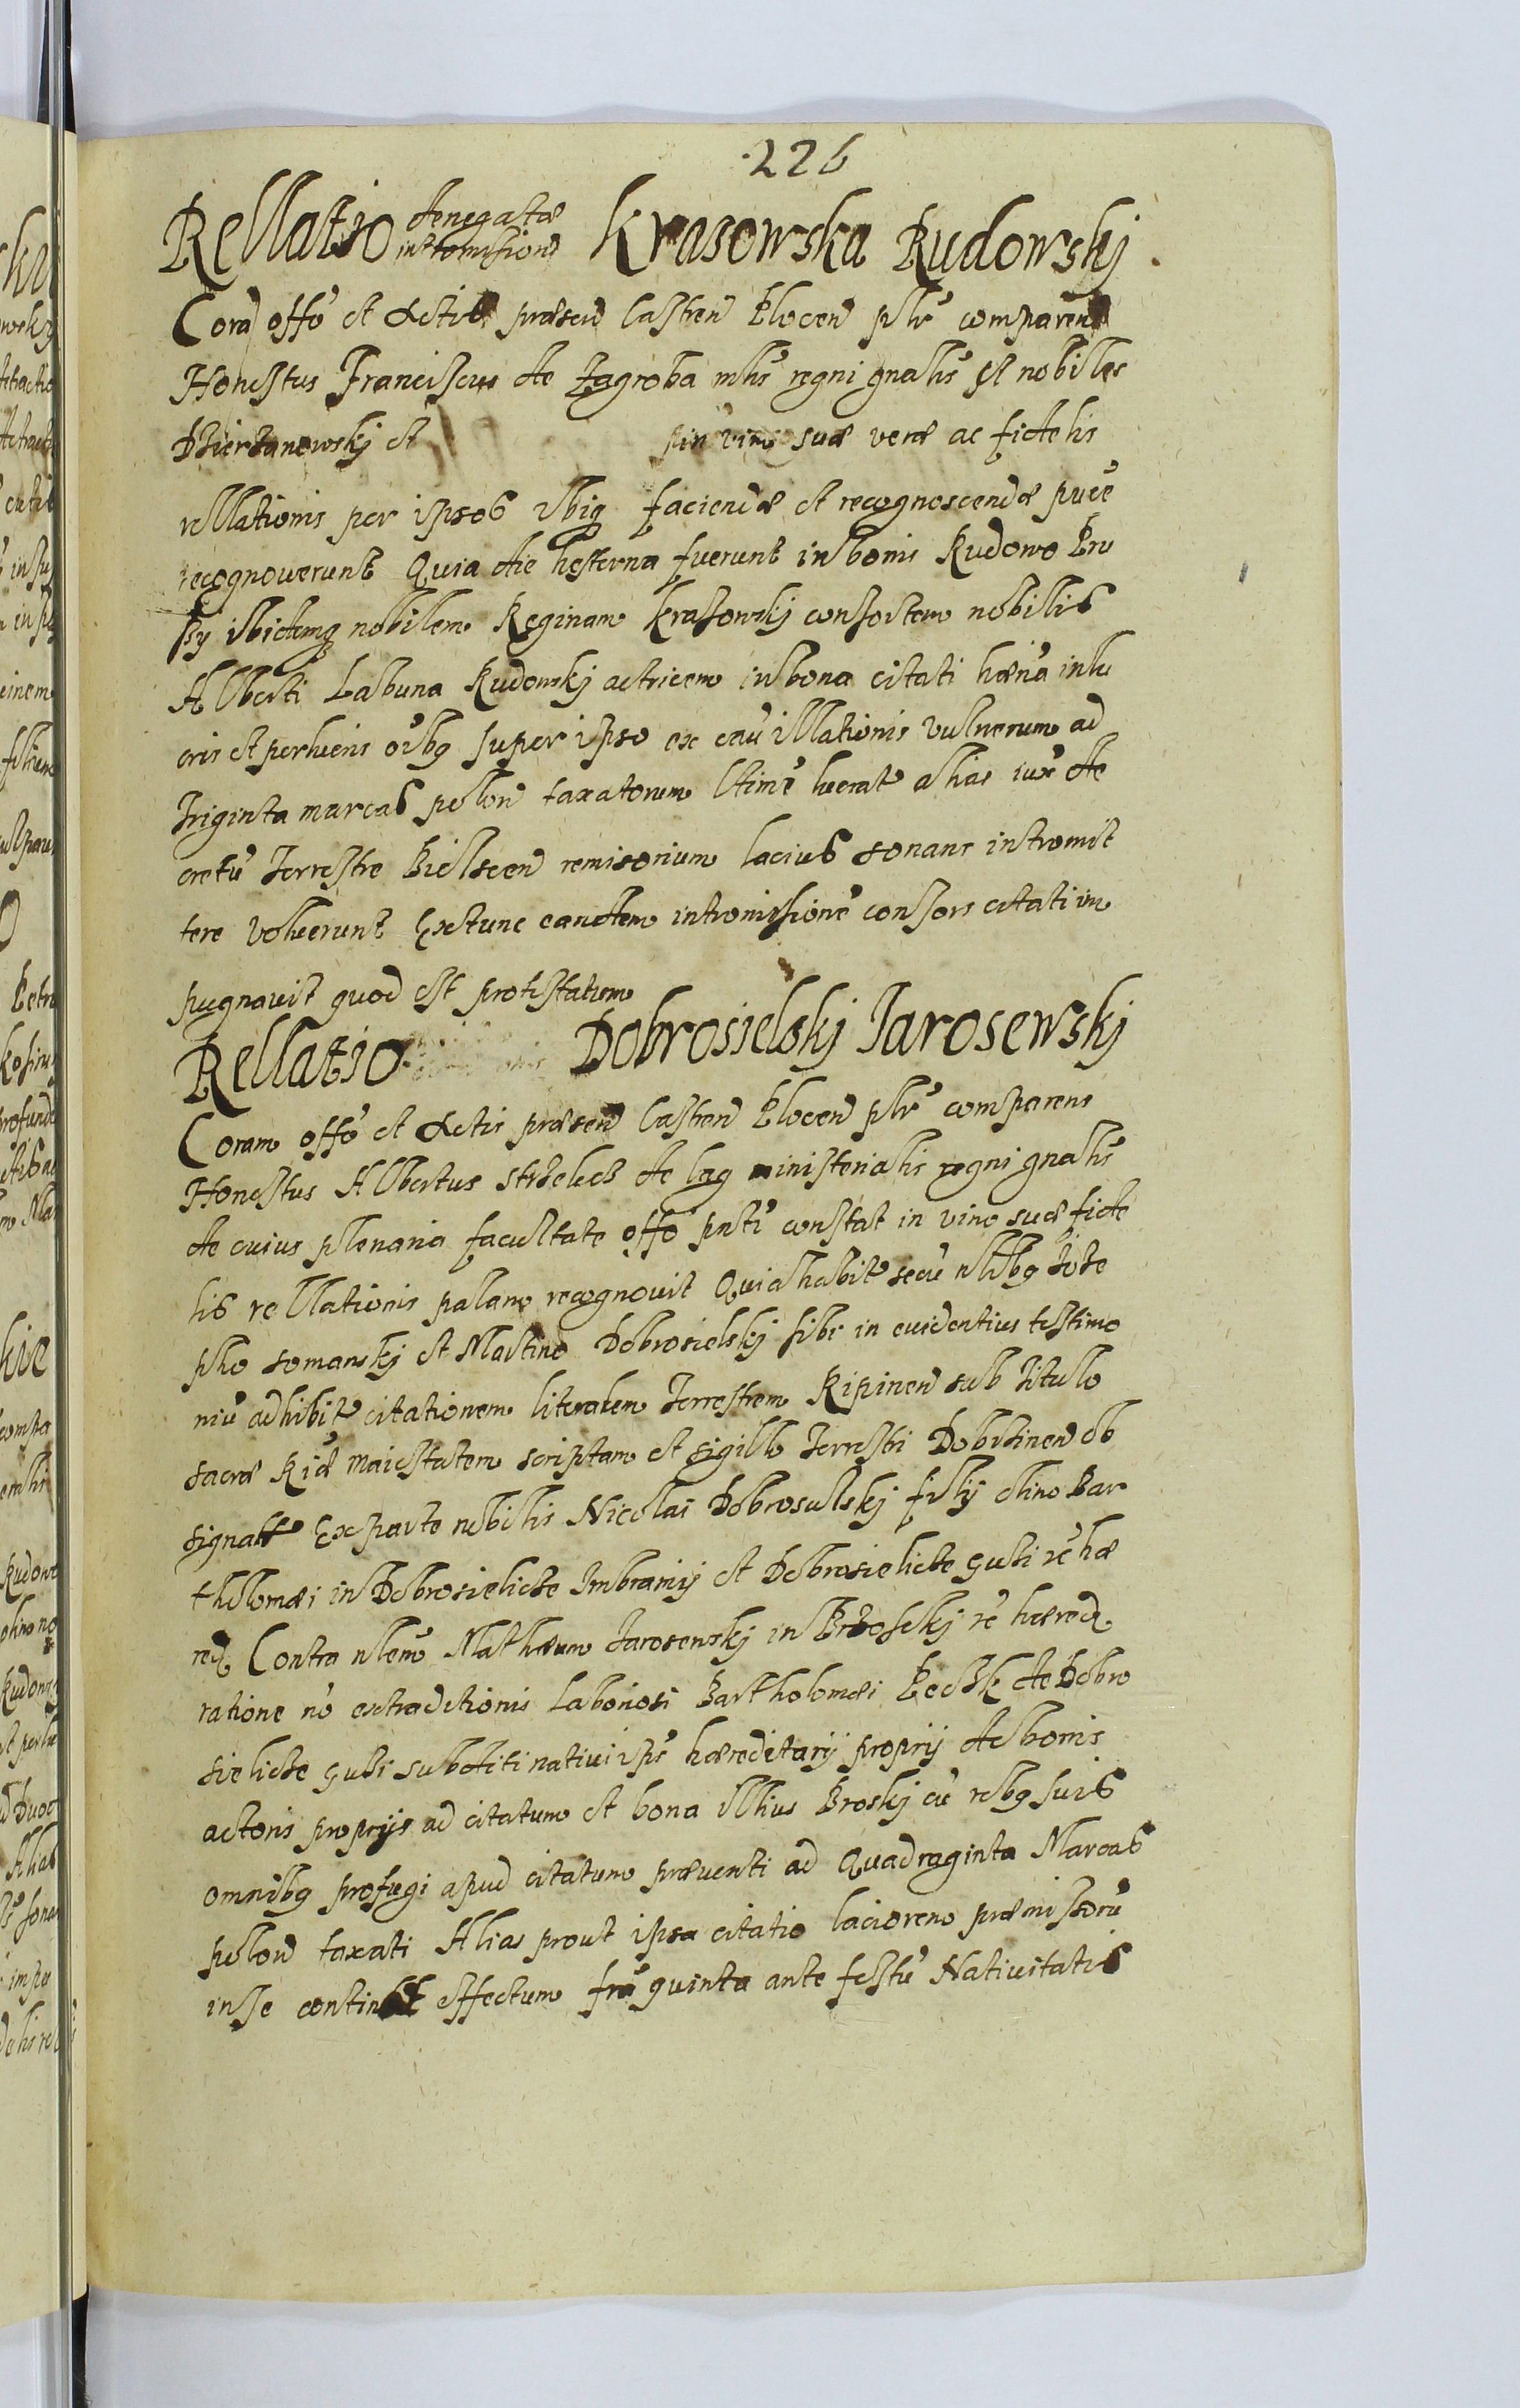 226
Rellatio denegatae intromissionis Krasowska Rudowskj
Corā offō et Actis praesen Castren Plocen plr̄ comparens
Honestus Franciscus de Zagroba mlis̄ regni gnalis̄ et nobiles
Dzierzanowskj et in vim suae verae ac fidelis
rellationis per ipsos ibiq faciendae et recognoscendae pu
recognowerunt Quia die hesterna fuerunt in bonis Rudowo Bru
sy ibidemq nobilem Reginam Krasowskj consortem nobilis
Alberti Labuna Rudowskj actricem in bona citati in lu
cris et perlucris oībq super ipso ex cavillationis vulnerum ad
Triginta marcas polon taxatorum lucrat alias iux de
cretū Terrestre Bielscen remisorium lacius sonans intromit
tere voluerunt Extunc eandem intromissionē consors citati im
pugnavit quod est protestatum
Rellatio Dobrosielskj Jarosewskj
Coram offō et Actis praesen Castren Plocen plr̄ comparens
Honestus Albertus strzelecz de Lag ministerialis regni gnalis̄
de cuius plenaria facultate offō pnti constat in vim suae fide
lis rellationis palam recognovit Quia habit secū nlibq
pho somanskj et Martino Dobrosielskj sibi in evidentius testimo
niū adhibit citationem literalem Terrestrem Ripinen sub Titulo
sacrae Riae Maiestatem scriptam et sigillo Terrestri Dobrzinen ob
signat Ex parte nobilis Nicolai Dobrosulskj filij olim Bar
tholomaei in Dobrosielicze Imbramij et Dobrosielicze guti rē hae
red Contra nlem̄ Mathaeum Jarosewskj in Brzosckj rē haered
ratione nō extraditionis Laboriosi Bartholomaei de Dobro
sielicze guti subditi nativi ips̄ haereditarij proprij de bonis
actoris proprijs ad citatum et bona illius Broskj cū rebq suis
omnibq profugi apud citatum praeventi ad Quadraginta Marcas
polon taxati Alias prout ipsa citatio laciorem praemissorū
in se continet effectum frā quinta ante festū Nativitatis